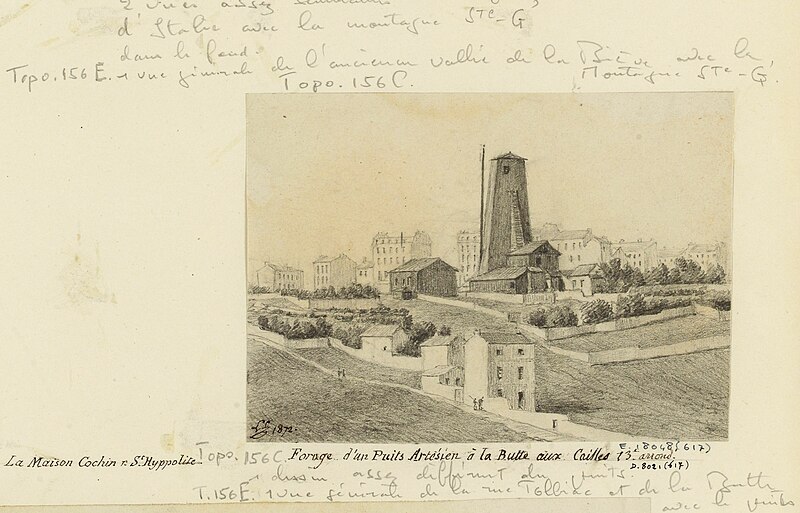 2 vues assez
d'Italie avec la montagne Ste-G
dans le fond.
Topo.156E. 1 vue générale de l'ancienne vallée de la Bièvre avec la
Montagne Ste-G.
Topo.156C.
1872.
La Maison Cochin r. St Hyppolite
Forage d'un Puits Artésien à la Butte aux Cailles 13 arrond.
E.18048(617)
D.8021(617)
Topo. 156C.
1 dessin assez différent du puits.
T.156E. 1 vue générale de la rue Tolbiac et de la Butte
avec le puits